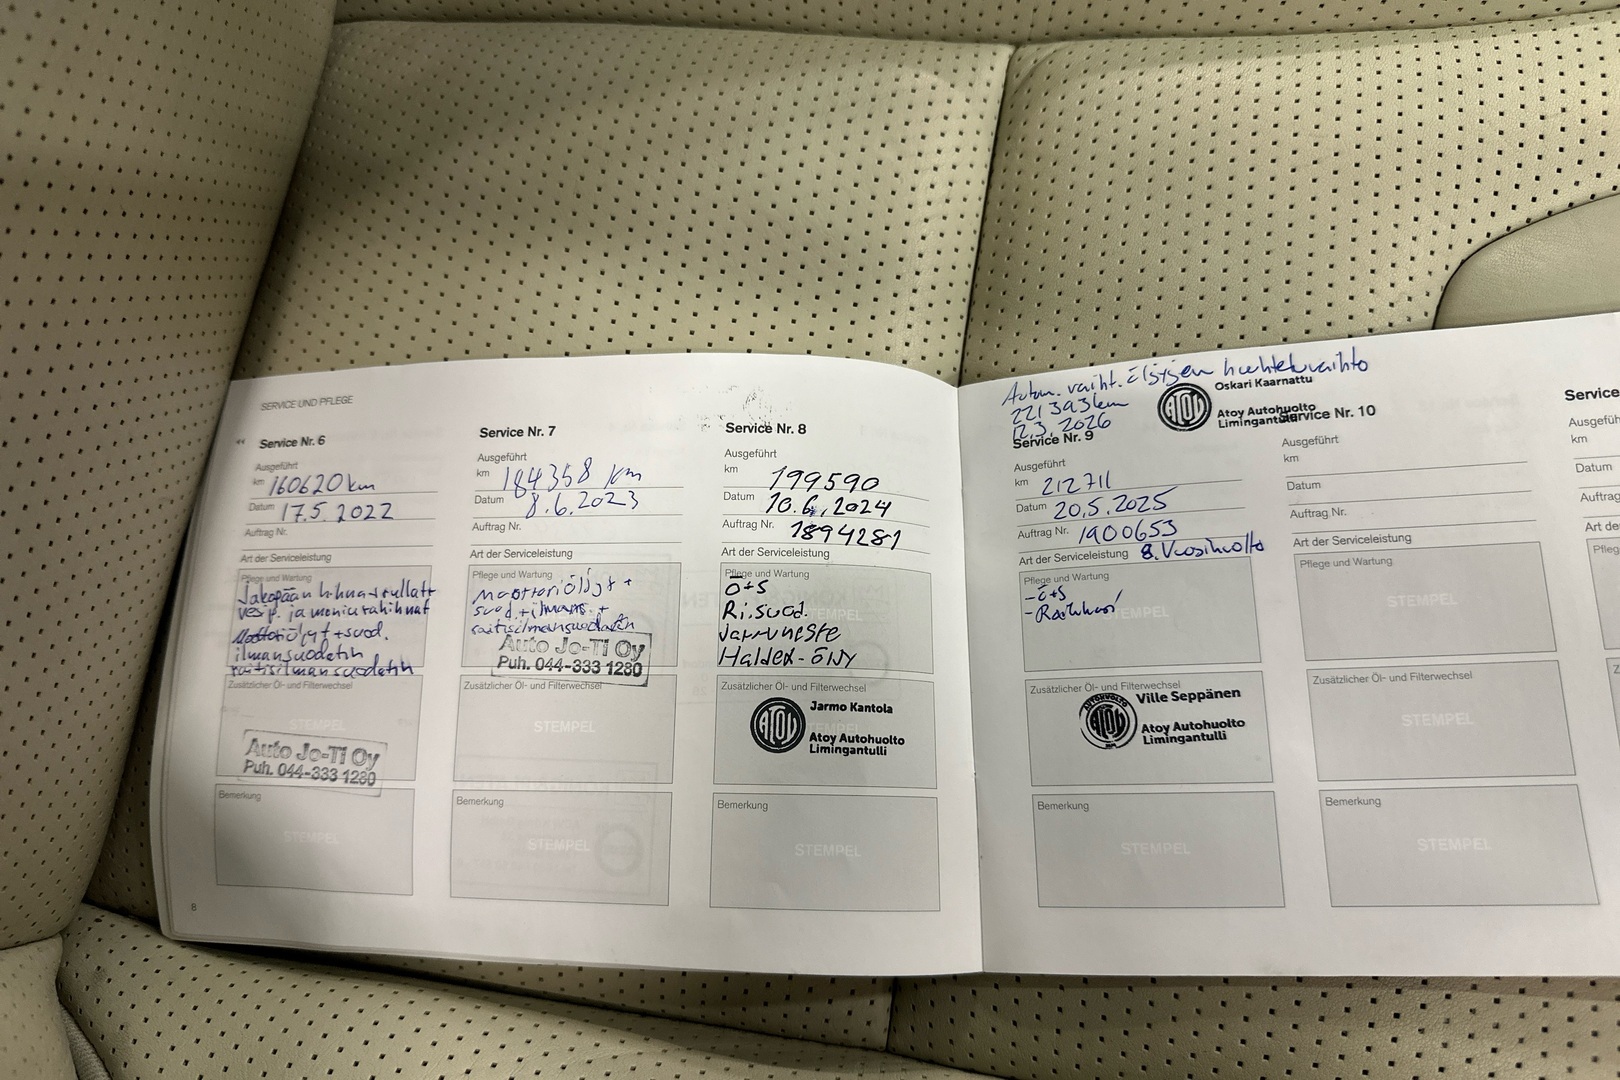 SERVICE UND PFLEGE
Service Nr. 6
Ausgeführt
km 160620 km
Datum 17.5. 2022
Auftrag Nr.
Art der Serviceleistung
Pflege und Wartung
Jakopään hihna+rullat+
vesip. ja moniurahihnat
öljyt+suod.
ilmansuodatin
raitisilmansuodatin
Zusätzlicher Öl- und Filterwechsel
STEMPEL
Auto Jo-Ti Oy
Puh. 044-333 1280
Bemerkung
STEMPEL
8
Service Nr. 7
Ausgeführt
km 184358 km
Datum 8.6.2023
Auftrag Nr.
Art der Serviceleistung
Pflege und Wartung
Moottoriöljyt +
suod.+ilmans. +
raitisilmansuodatin
Auto Jo-Ti Oy
Puh. 044-333 1280
Zusätzlicher Öl- und Filterwechsel
STEMPEL
Bemerkung
STEMPEL
Service Nr. 8
Ausgeführt
km 199590
Datum 10.6.2024
Auftrag Nr. 1894281
Art der Serviceleistung
Pflege und Wartung
Ö+S
Ri.suod.
STEMPEL
Jarruneste
Haldex-öljy
Zusätzlicher Öl- und Filterwechsel
ATOY
Jarmo Kantola
Atoy Autohuolto
Limingantulli
Bemerkung
STEMPEL
Autom. vaiht. öljyjen huuhteluvaihto
221393km
12.3. 2026
ATOY
Oskari Kaarnattu
Atoy Autohuolto
Limingantulli
Service Nr. 9
Ausgeführt
km 212711
Datum 20.5.2025
Auftrag Nr. 1900653
Art der Serviceleistung 8. Vuosihuolto
Pflege und Wartung
-Ö+S
Zusätzlicher Öl- und Filterwechsel
AUTOHUOLTO
ATOY
Ville Seppänen
Atoy Autohuolto
Limingantulli
Bemerkung
STEMPEL
Service Nr. 10
Ausgeführt
km
Datum
Auftrag Nr.
Art der Serviceleistung
Pflege und Wartung
STEMPEL
Zusätzlicher Öl- und Filterwechsel
STEMPEL
Bemerkung
STEMPEL
Service
Ausgefüh
km
Datum
Auftrag
Art de